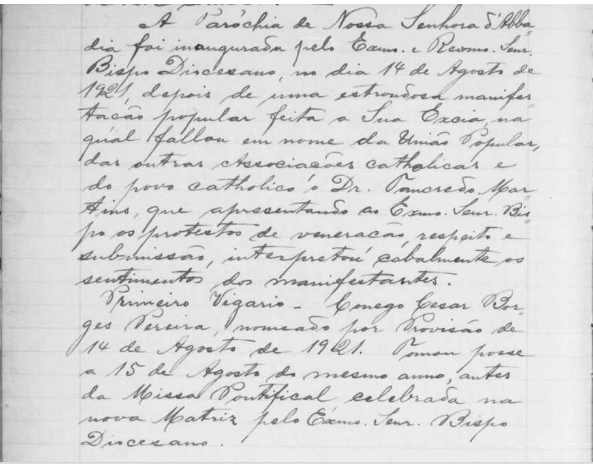 A Paróchia de Nossa Senhora d'Abba
dia foi inaugurada pelo Exmo. e Revmo. Senr.
Bispo Diocesano, no dia 14 de Agosto de
1921, depois de uma estrondosa manifes
tacão popular feita a Sua Excia, na
qual fallou em nome da União Popular,
das outras Associações catholicas e
do povo catholico o Dr. Tancredo Mar
tins, que apresentando ao Exmo. Senr. Bis
po os protestos de veneracão, respeito e
submissão, interpretou cabalmente os
sentimentos dos manifestantes.
Primeiro Vigario - Conego Cesar Bor
ges Pereira, nomeado por Provisão de
14 de Agosto de 1921. Tomou posse
a 15 de Agosto do mesmo anno, antes
da Missa Pontifical celebrada na
nova Matriz pelo Exmo. Senr. Bispo
Diocesano.